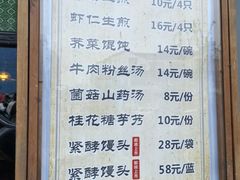 10元/4只
虾仁生煎 16元/4只
荠菜馄饨 14元/碗
牛肉粉丝汤 14元/碗
菌菇山药汤 8元/份
桂花糖芋艿 10元/份
紧酵馒头 28元/袋
紧酵馒头 58元/蓝